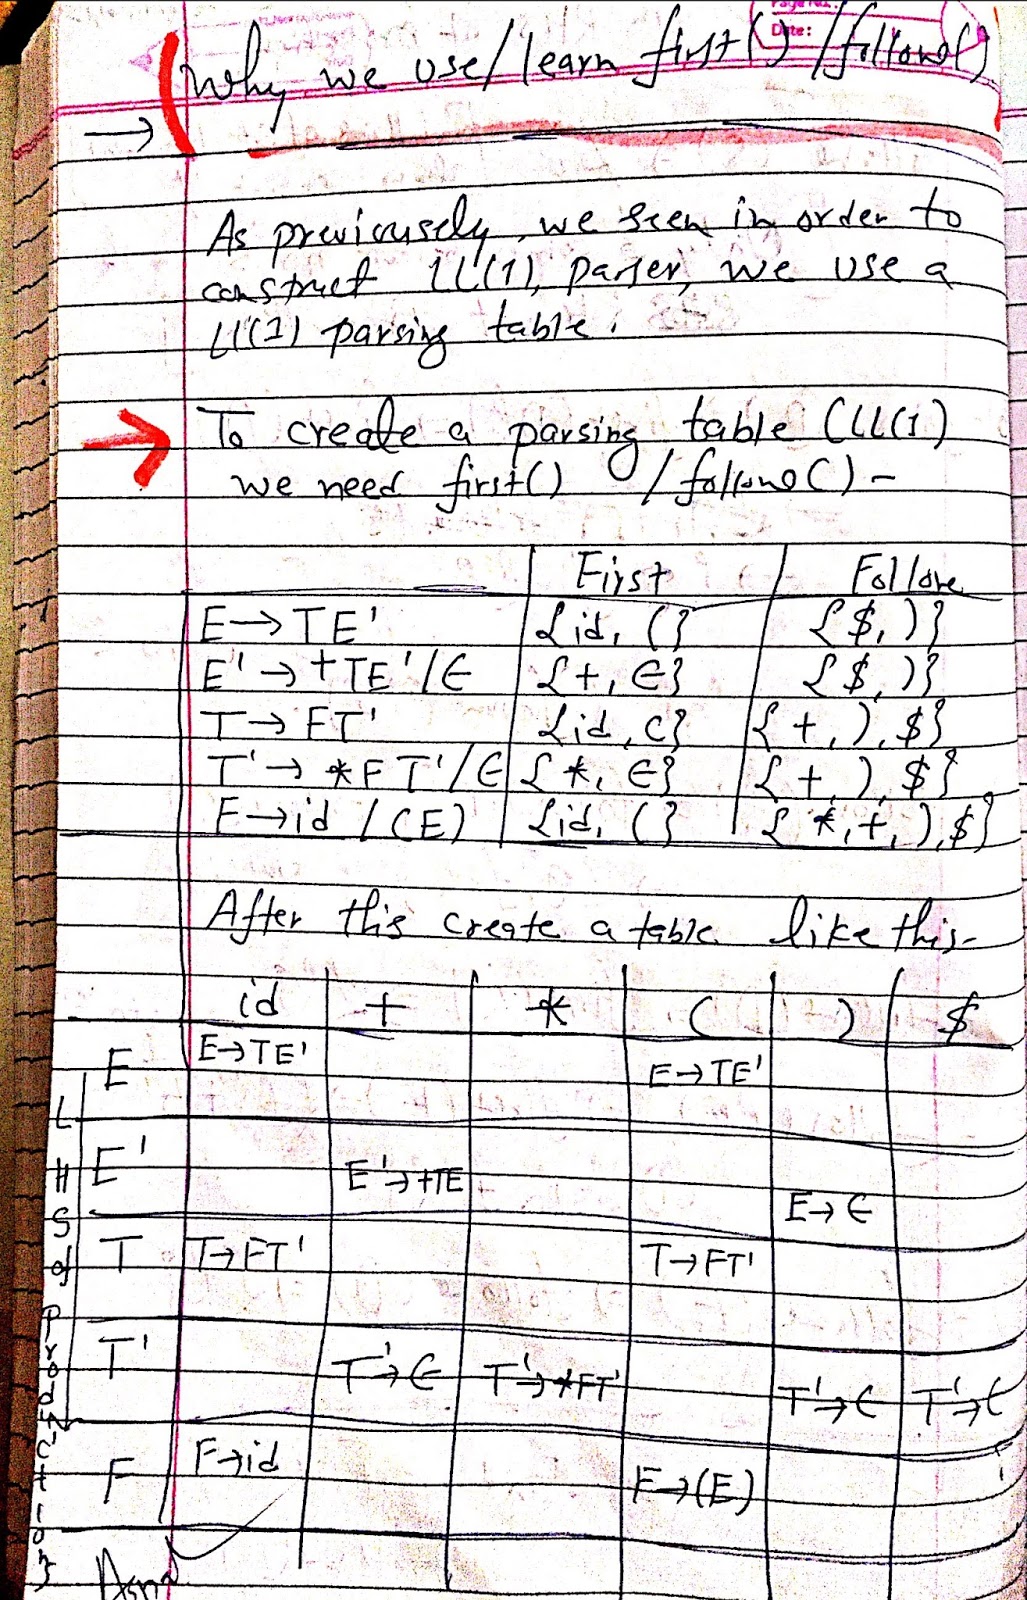 Page No.
Date:
Why we use/learn first()/follow()
→
As previousely, we seen in order to
construct LL(1), parser, we use a
LL(1) parsing table.
→ To create a parsing table (LL(1)
we need first() /follow() -
First Follow
E→TE' {id, (} {$, )}
E'→+TE'/∈ {+, ∈} {$, )}
T→FT' {id, (} {+, ), $}
T'→*FT'/∈ {*, ∈} {+, ), $}
F→id/(E) {id, (} {*, +, ), $}
After this create a table like this-
id + * ( ) $
E E→TE' E→TE'
E' E'→+TE E→∈
T T→FT' T→FT'
T' T'→∈ T'→*FT' T'→∈ T'→∈
F F→id F→(E)
LHS of productions